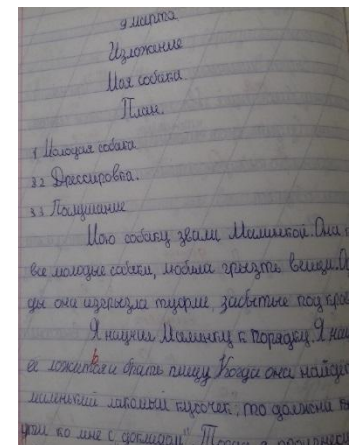 9 марта
Изложение
Моя собака
План.
1 Молодая собака
32 Дрессировка.
33 Послушание
Мою собаку звали Малинкой. Она
все молодые собаки, любила грызть вещи.
ды она изгрызла туфли, забытые под
Я научил Малинку к порядку. Я
её ложиться и брать пищу Когда она
маленький лакомый кусочек, то должна
ко мне с докладом